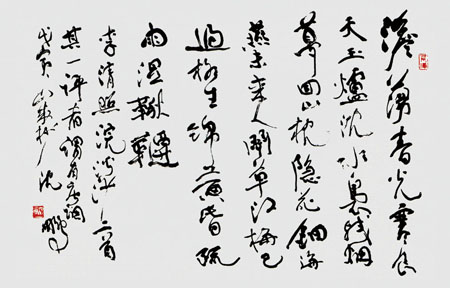 澹蕩春光寒食
天玉爐沈水裊殘烟
夢回山枕隱花鈿海
燕未來人鬥草江梅已
過柳生綿黃昏疏
雨濕鞦韆
李清照浣溪沙六首
其一評者謂有
戊寅沈鵬